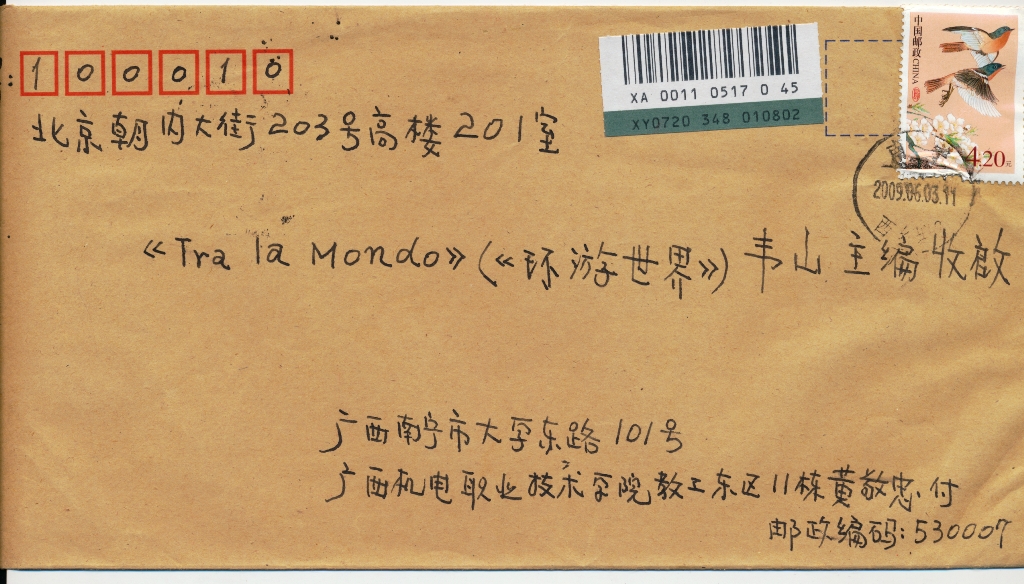 100010
北京朝内大街203号高楼201室
《Tra la Mondo》(《环游世界》) 韦山 主编 收启
广西南宁市大学东路101号
广西机电职业技术学院教工东区11栋黄敬忠付
邮政编码:530007
XA 0011 0517 0 45
XY0720 348 010802
中国邮政 CHINA
4.20元
2009.06.03.11